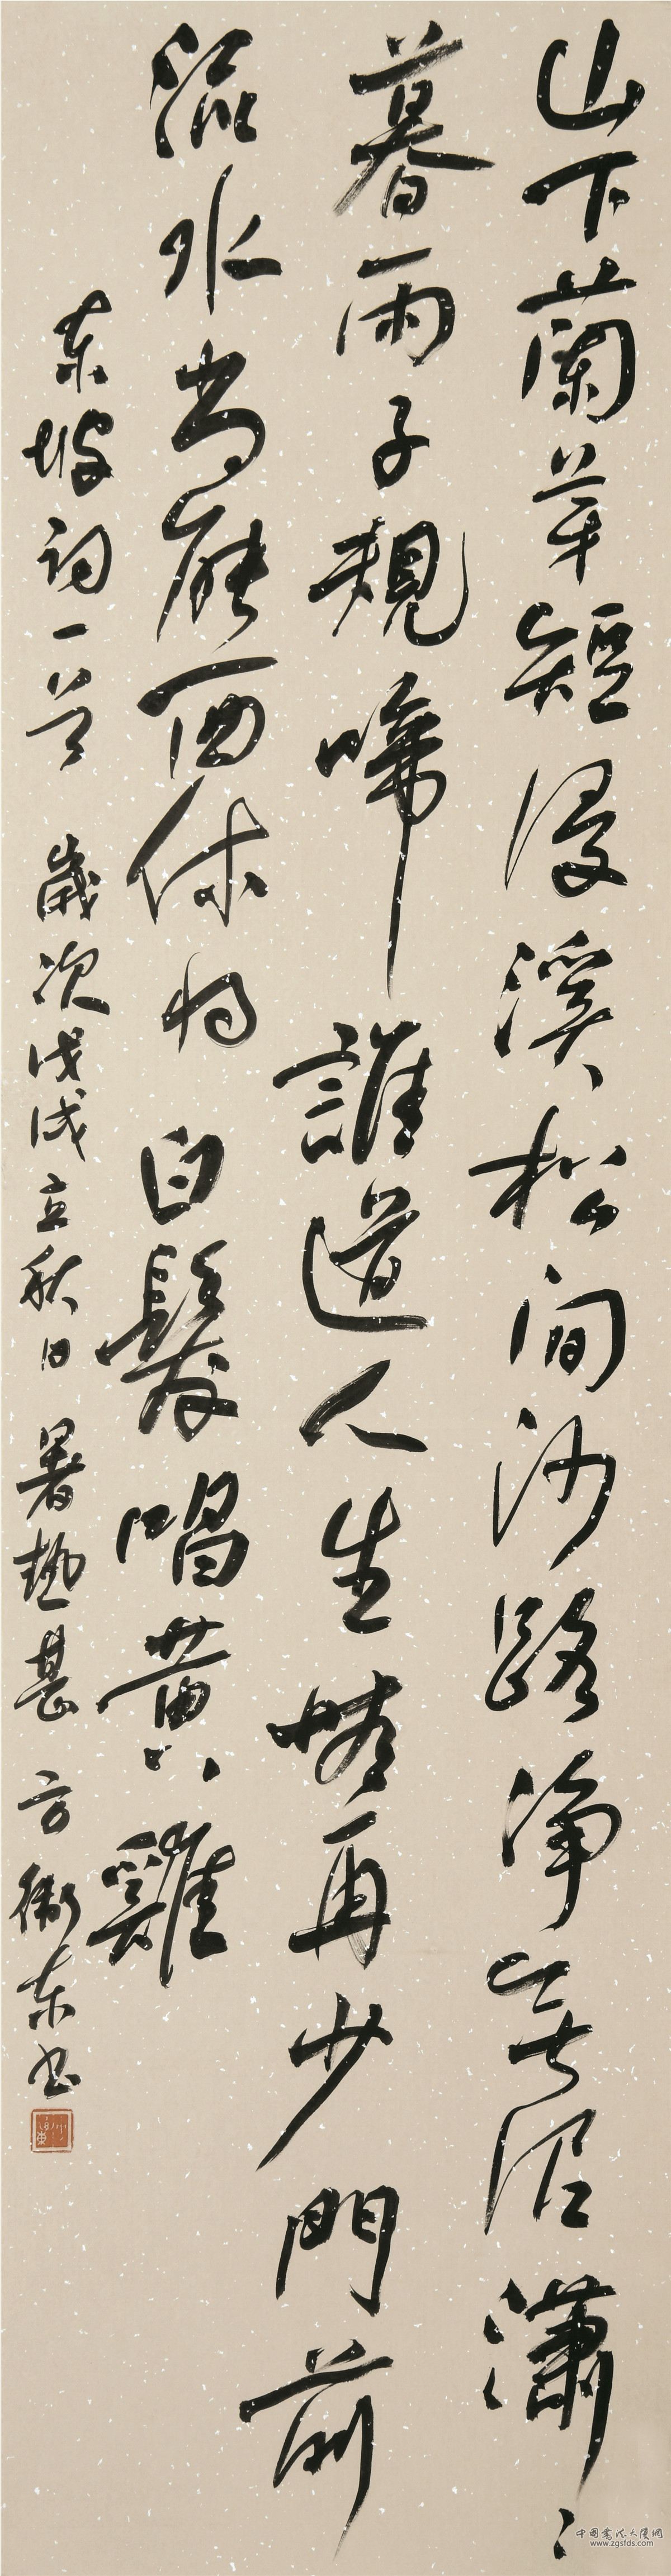 山下蘭芽短浸溪松間沙路净無泥瀟〻
暮雨子規啼誰道人生再少門前
流水尚能西休將白髮唱黃雞
東坡詞一首 歲次戊戌立秋日 暑熱甚 方衛東書
www.zgsfds.com